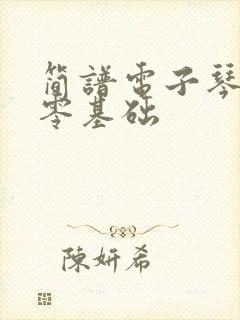 简譜電子琴
零基础
陳妍希